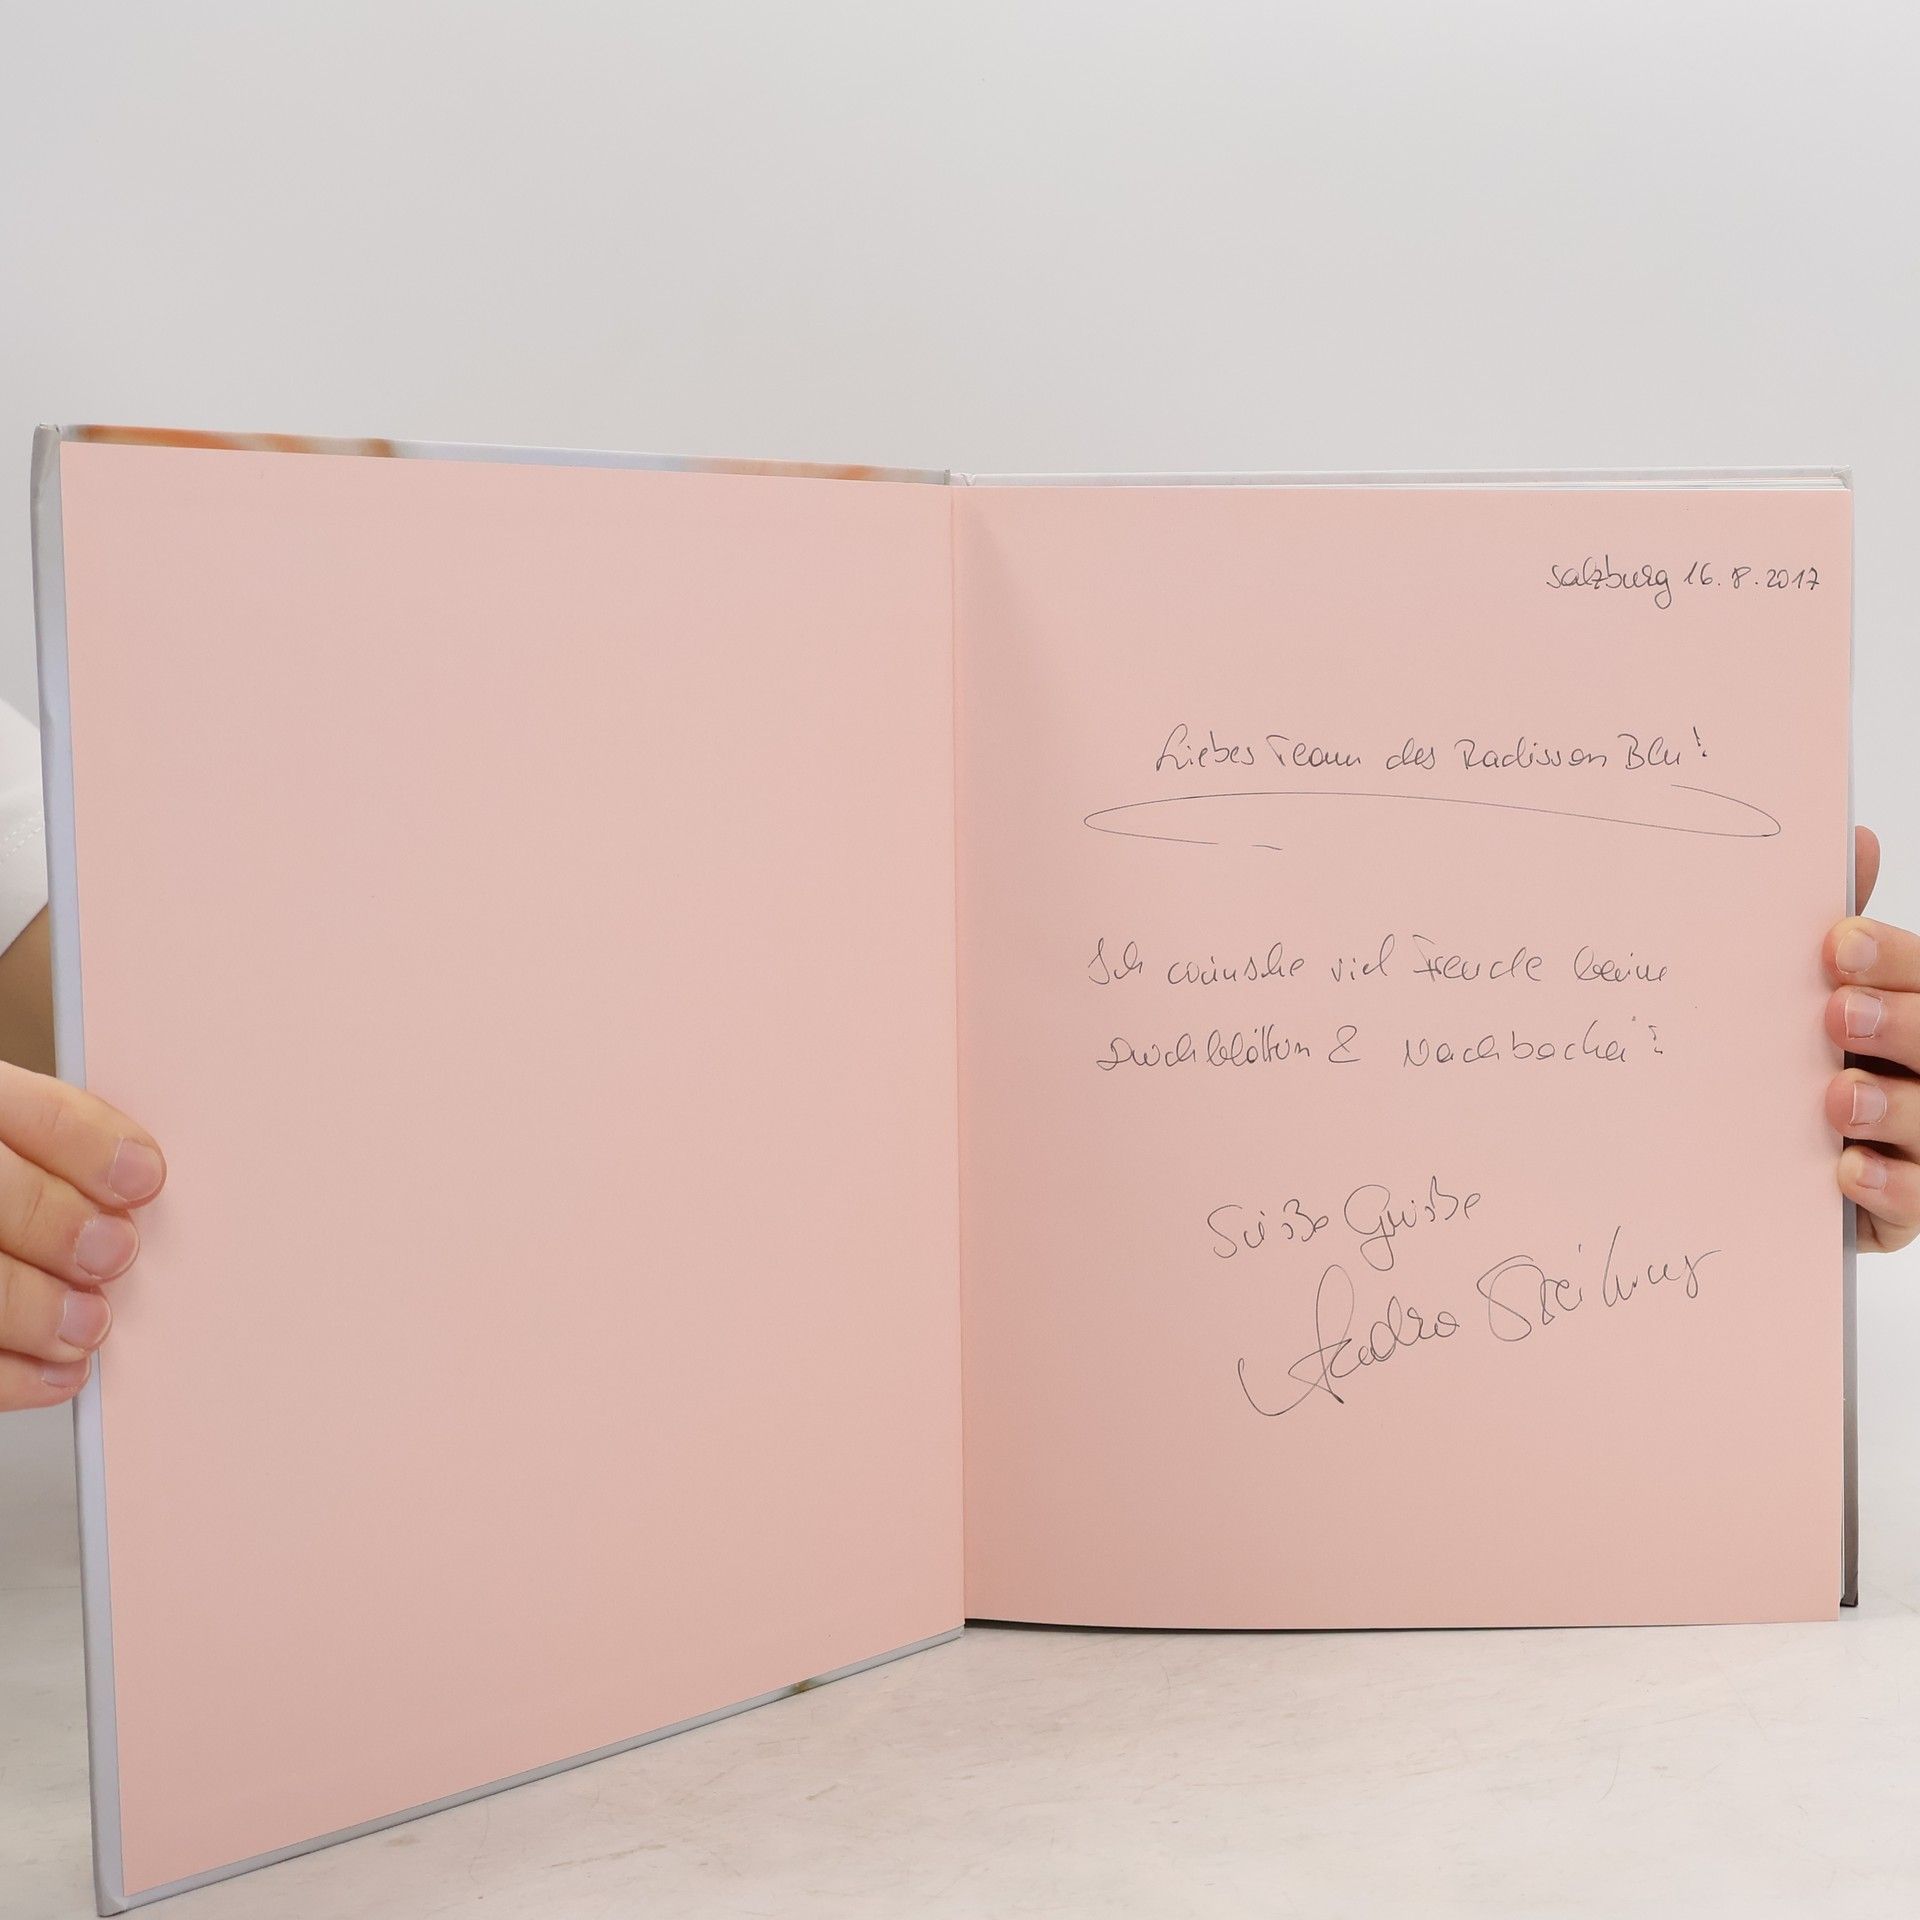 Salzburg 16.8.2017
Liebes Team des Radisson Blu!
Ich wünsche viel Freude beim
Durchblättern & Nachbacken!
Süße Grüße